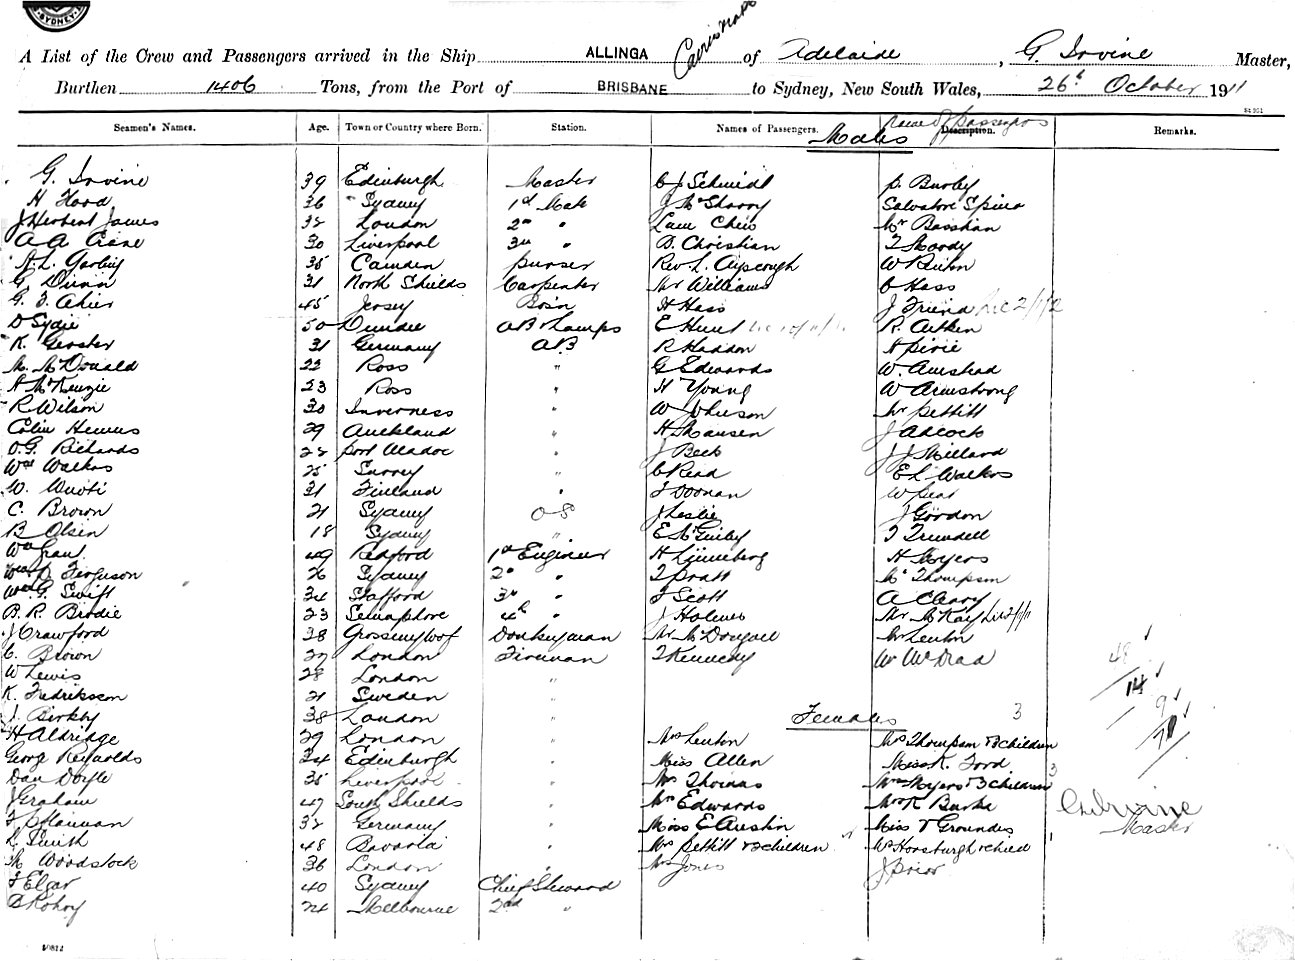 SYDNEY
A List of the Crew and Passengers arrived in the Ship ALLINGA of Adelaide, G. Irvine Master,
Burthen 1406 Tons, from the Port of BRISBANE to Sydney, New South Wales, 26th October 1911
Seamen's Names. Age. Town or Country where Born. Station. Names of Passengers. Names of Passengers Description. Remarks.
Males
G. Irvine 39 Edinburgh Master C J Schmidt P. Burley
H Hood 36 Sydney 1st Mate J McSharry Salvatore Spina
J Herbert James 32 London 2nd " Lum Chew Mr Basshan
A A Crane 30 Liverpool 3rd " B. Christian T Moody
A. L. Garling 35 Camden Purser Rev. L. Ayscough W
G. Dinan 31 North Shields Carpenter Mr Williams C Hass
G. F. Ahier 45 Jersey Bos'n H Hass J Friend
D Sydie 50 Dundee AB & Lamps E Hunt R. Aitken
K. Gerster 31 Germany AB R Haddon A Pirie
M. McDonald 22 Ross " G Edwards W.
A McKenzie 23 Ross " H Young W Armstrong
R Wilson 30 Inverness " W Johnson Mr Pettitt
Colin 29 Auckland " H. Hansen J Adcock
O. G. Richards 22 Port Madoc " J Beck J J Millard
Wm Walker 25 Surrey " C Read E L Walker
W. 31 Finland " T Doonan W
C. Brown 21 Sydney OS J Leslie J Gordon
B Olsen 18 Sydney " E McGinley T Trundell
Wm 49 Redford 1st Engineer H H Meyers
Wm D. Ferguson 26 Sydney 2nd " T Pratt Mr Thompson
Wm G. Swift 34 Stafford 3rd " T Scott A Cleary
B. R. Brodie 23 Semaphore 4th " J Holmes Mr McKay
J Crawford 38 Donkeyman Mr McDougall Mr Lenton
C. Brown 27 London Fireman T Kennedy Mr
W Lewis 28 London "
K. Fredriksson 21 Sweden "
J. Birkby 38 London " Females 3
H Aldridge 29 London " Mrs Lenton Mrs Thompson & 2 children
Georg Reynolds 34 Edinburgh " Miss Allen Miss K. Ford
Dan Doyle 35 Liverpool " Mrs Thomas Mrs Meyers & 3 children 3
J Graham 47 South Shields " Mrs Edwards Mrs K Burke
32 Germany " Miss E Austin Miss V Groundes
L. Smith 48 Bavaria " Mrs Pettitt & 2 children Mrs Horsburgh & child 1
M Woodstock 36 London " Mrs Jones J Prior
T Elgar 40 Sydney Chief Steward
24 Melbourne 2nd "
48
14
9
71
G Irvine
Master